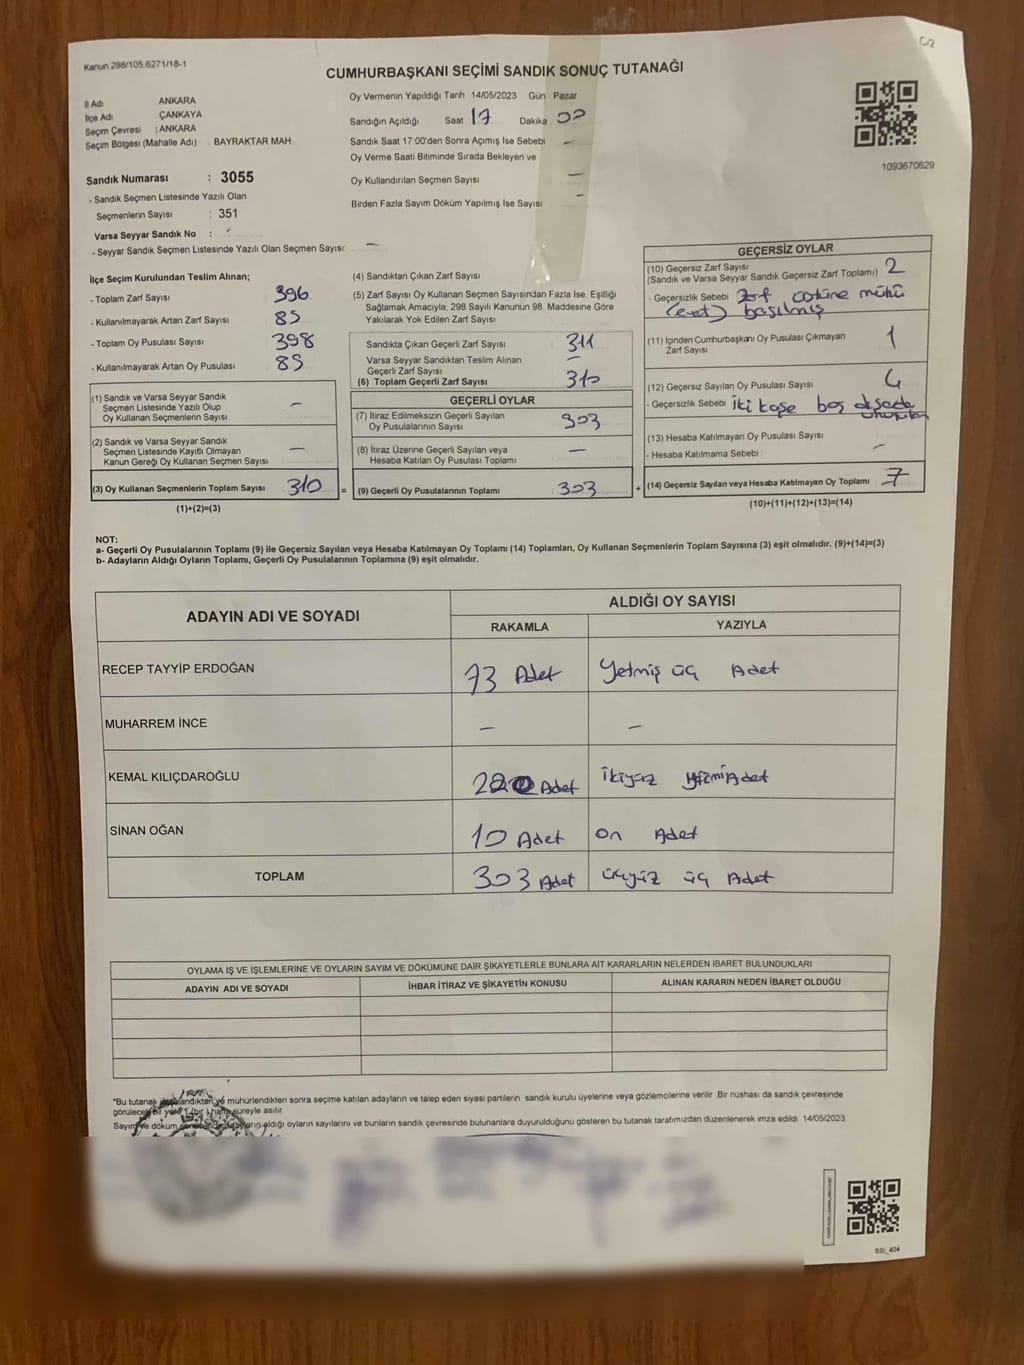 C/2
Kanun 298/105.6271/18-1
CUMHURBAŞKANI SEÇİMİ SANDIK SONUÇ TUTANAĞI
İl Adı ANKARA
İlçe Adı ÇANKAYA
Seçim Çevresi : ANKARA
Seçim Bölgesi (Mahalle Adı) BAYRAKTAR MAH
Sandık Numarası : 3055
- Sandık Seçmen Listesinde Yazılı Olan
Seçmenlerin Sayısı : 351
Varsa Seyyar Sandık No :
- Seyyar Sandık Seçmen Listesinde Yazılı Olan Seçmen Sayısı: -
Oy Vermenin Yapıldığı Tarih 14/05/2023 Gün Pazar
Sandığın Açıldığı Saat 17 Dakika 00
Sandık Saat 17:00'den Sonra Açımış İse Sebebi -
Oy Verme Saati Bitiminde Sırada Bekleyen ve
Oy Kullandırılan Seçmen Sayısı -
Birden Fazla Sayım Döküm Yapılmış İse Sayısı -
1093670629
İlçe Seçim Kurulundan Teslim Alınan;
- Toplam Zarf Sayısı 396
- Kullanılmayarak Artan Zarf Sayısı 85
- Toplam Oy Pusulası Sayısı 398
- Kullanılmayarak Artan Oy Pusulası 85
(1) Sandık ve Varsa Seyyar Sandık
Seçmen Listesinde Yazılı Olup
Oy Kullanan Seçmenlerin Sayısı -
(2) Sandık ve Varsa Seyyar Sandık
Seçmen Listesinde Kayıtlı Olmayan
Kanun Gereği Oy Kullanan Seçmen Sayısı -
(3) Oy Kullanan Seçmenlerin Toplam Sayısı 310 =
(1)+(2)=(3)
(4) Sandıktan Çıkan Zarf Sayısı
(5) Zarf Sayısı Oy Kullanan Seçmen Sayısından Fazla İse, Eşitliği
Sağlamak Amacıyla, 298 Sayılı Kanunun 98. Maddesine Göre
Yakılarak Yok Edilen Zarf Sayısı
Sandıkta Çıkan Geçerli Zarf Sayısı 311
Varsa Seyyar Sandıktan Teslim Alınan
Geçerli Zarf Sayısı -
(6) Toplam Geçerli Zarf Sayısı 310
GEÇERLİ OYLAR
(7) İtiraz Edilmeksizin Geçerli Sayılan
Oy Pusulalarının Sayısı 303
(8) İtiraz Üzerine Geçerli Sayılan veya
Hesaba Katılan Oy Pusulası Toplamı -
(9) Geçerli Oy Pusulalarının Toplamı 303 +
GEÇERSİZ OYLAR
(10) Geçersiz Zarf Sayısı
(Sandık ve Varsa Seyyar Sandık Geçersiz Zarf Toplamı) 2
- Geçersizlik Sebebi Zarf üstüne mührü
(evet) basılmış
(11) İçinden Cumhurbaşkanı Oy Pusulası Çıkmayan
Zarf Sayısı 1
(12) Geçersiz Sayılan Oy Pusulası Sayısı 4
- Geçersizlik Sebebi iki kaşe boş
(13) Hesaba Katılmayan Oy Pusulası Sayısı
- Hesaba Katılmama Sebebi -
(14) Geçersiz Sayılan veya Hesaba Katılmayan Oy Toplamı 7
(10)+(11)+(12)+(13)=(14)
NOT:
a- Geçerli Oy Pusulalarının Toplamı (9) ile Geçersiz Sayılan veya Hesaba Katılmayan Oy Toplamı (14) Toplamları, Oy Kullanan Seçmenlerin Toplam Sayısına (3) eşit olmalıdır. (9)+(14)=(3)
b- Adayların Aldığı Oyların Toplamı, Geçerli Oy Pusulalarının Toplamına (9) eşit olmalıdır.
ADAYIN ADI VE SOYADI ALDIĞI OY SAYISI
RAKAMLA YAZIYLA
RECEP TAYYİP ERDOĞAN 73 Adet Yetmiş üç Adet
MUHARREM İNCE - -
KEMAL KILIÇDAROĞLU 220 Adet ikiyüz yirmi Adet
SİNAN OĞAN 10 Adet on Adet
TOPLAM 303 Adet üçyüz üç Adet
OYLAMA İŞ VE İŞLEMLERİNE VE OYLARIN SAYIM VE DÖKÜMÜNE DAİR ŞİKAYETLERLE BUNLARA AİT KARARLARIN NELERDEN İBARET BULUNDUKLARI
ADAYIN ADI VE SOYADI İHBAR İTİRAZ VE ŞİKAYETİN KONUSU ALINAN KARARIN NEDEN İBARET OLDUĞU
"Bu tutanak ve mühürlendikten sonra seçime katılan adayların ve talep eden siyasi partilerin sandık kurulu üyelerine veya gözlemcilerine verilir. Bir nüshası da sandık çevresinde
görülecek bir yere 1 (bir) hafta süreyle asılır.
Sayım ve döküm aldığı oyların sayılarını ve bunların sandık çevresinde bulunanlara duyurulduğunu gösteren bu tutanak tarafımızdan düzenlenerek imza edildi. 14/05/2023
SSI_404